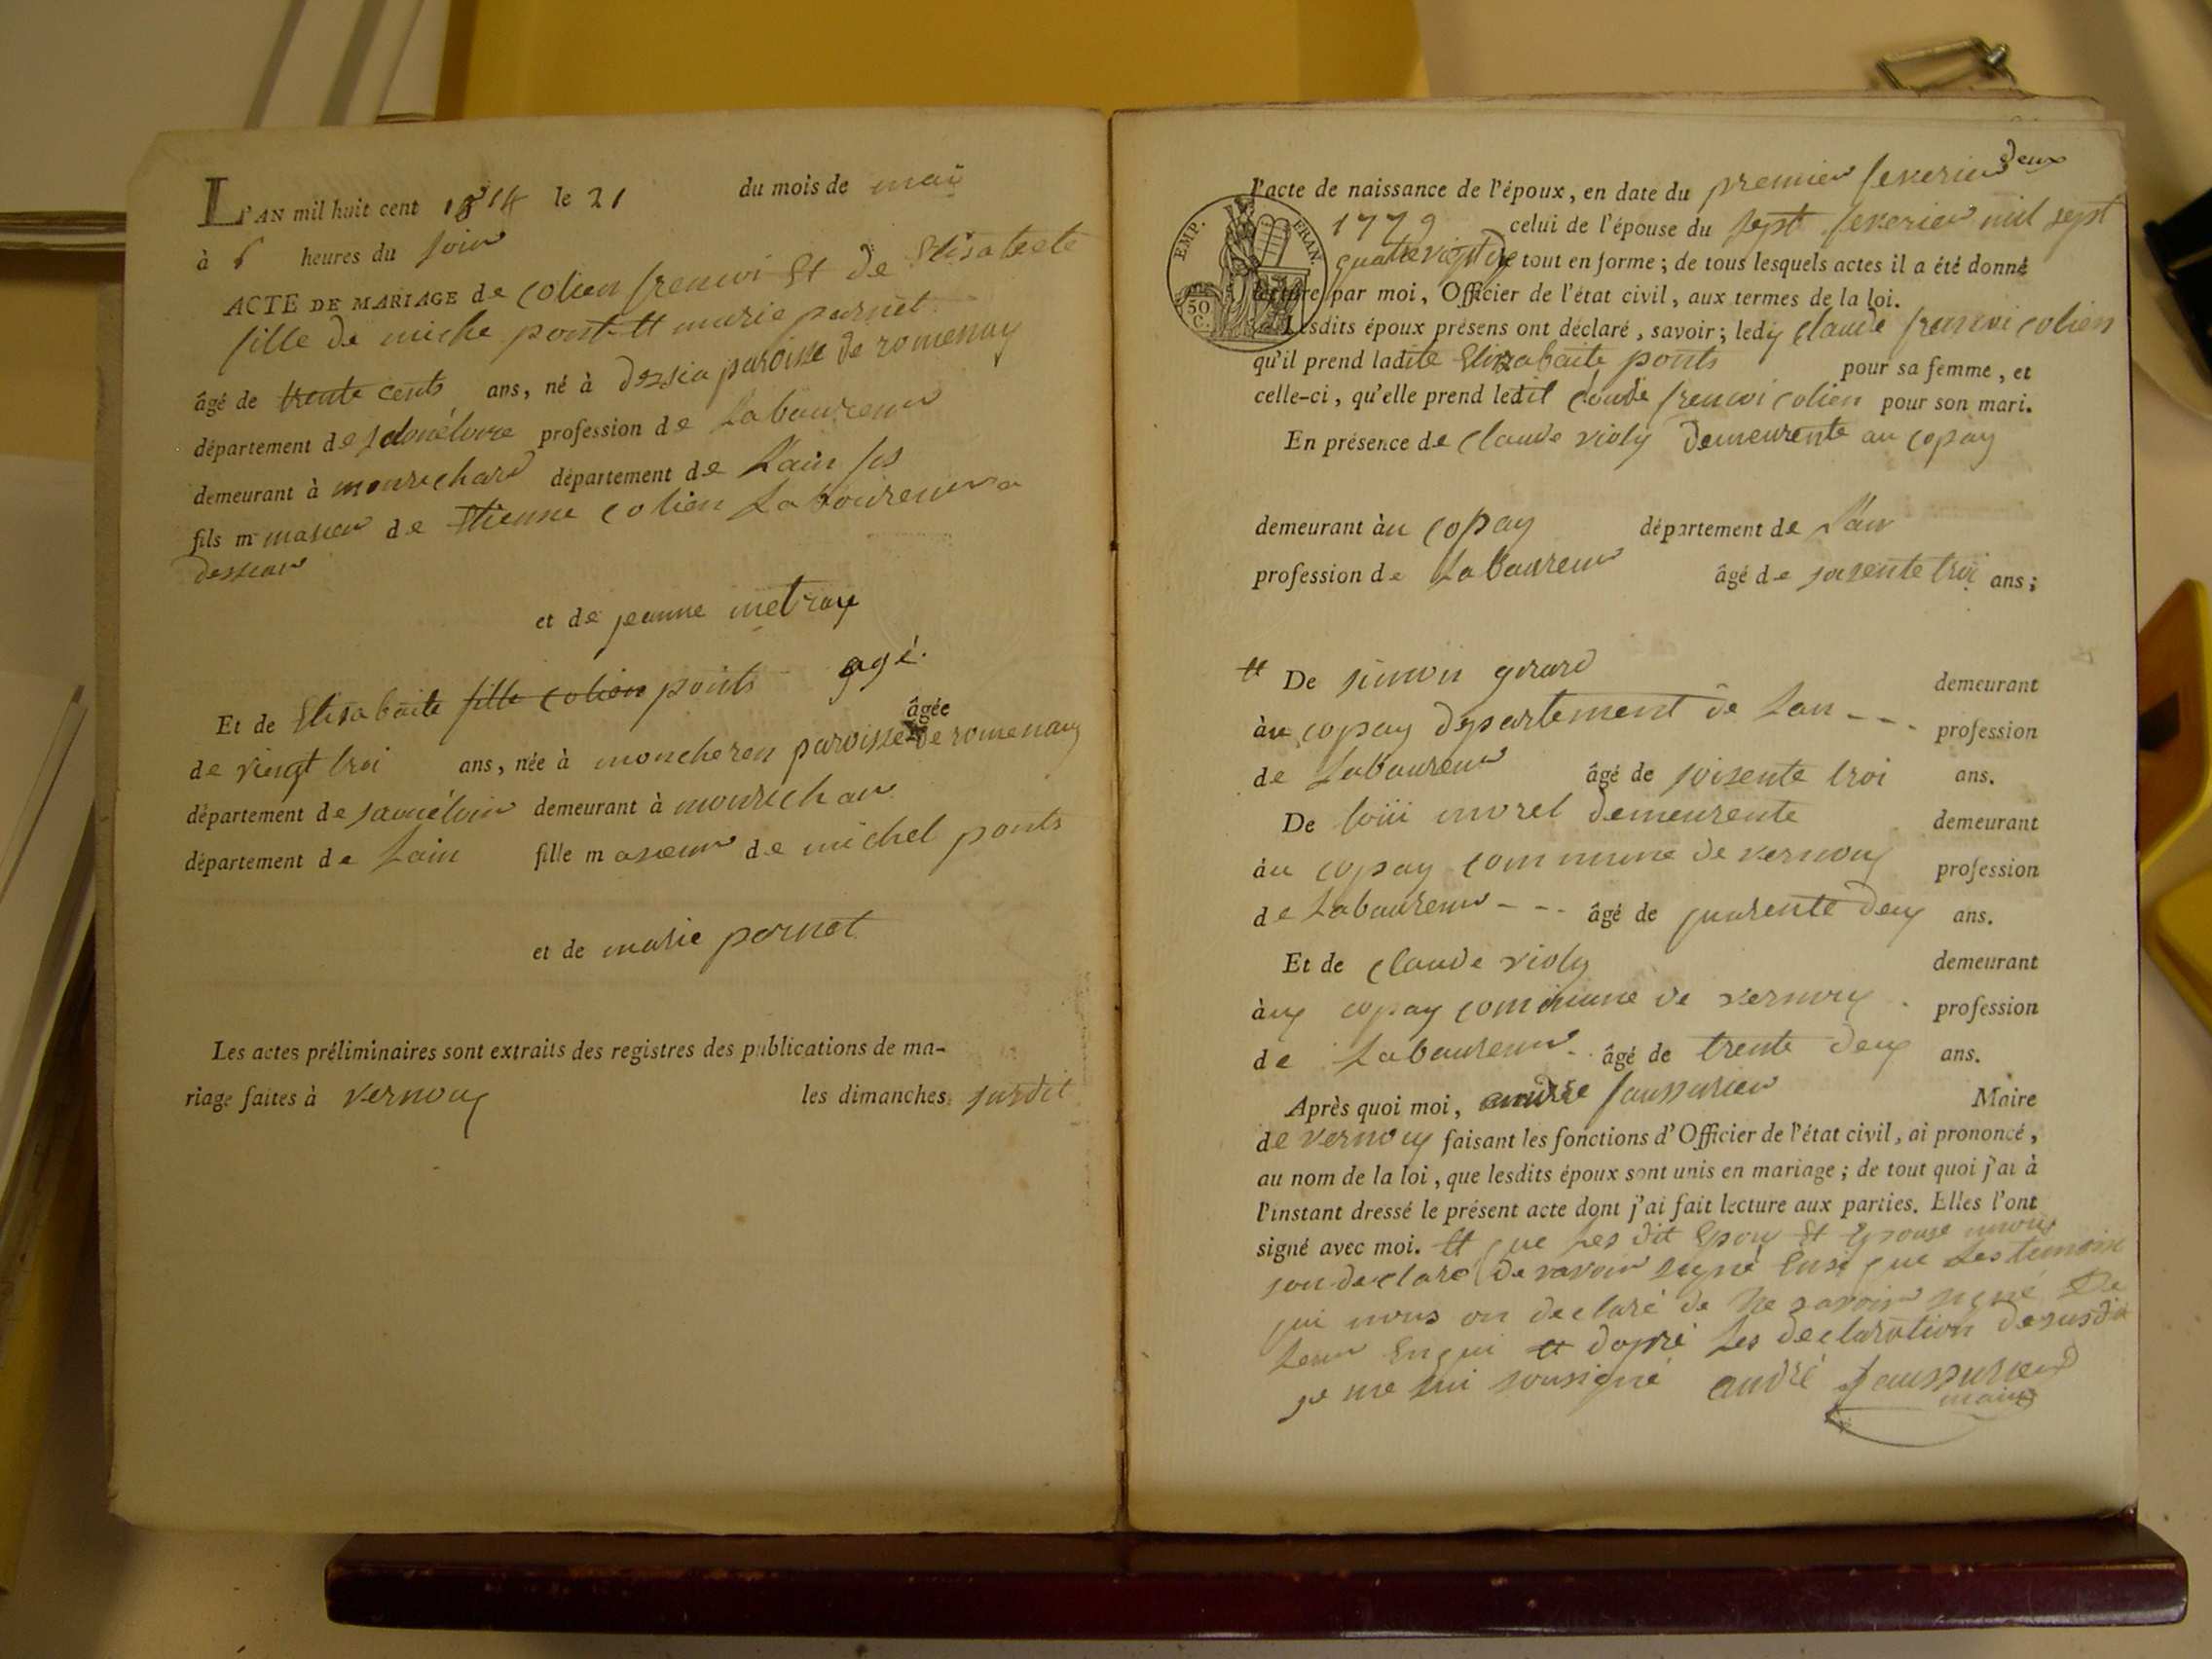 L'AN mil huit cent 1814 le 21 du mois de mai
à 6 heures du soir
ACTE DE MARIAGE de colien frencoi Et de Elisabete
fille de miche pont Et marie pernet
âgé de trente cents ans, né à dessia paroisse de romenay
département de saonéloire profession de Laboureur
demeurant à monrichard département de Lain fis
fils m maseur de Etienne colien Laboureur a
dessiar
et de jeanne metray
Et de Elisabaite fille colien ponts agé.
âgée
de vingt troi ans, née à moncheren paroisse de romenay
département de saonéloir demeurant à monrichar
département de Lain fille m aseur de michel ponts
et de marie pernet
Les actes préliminaires sont extraits des registres des publications de ma-
riage faites à vernouy les dimanches susdit
l'acte de naissance de l'époux, en date du premier feverier deux
1779 celui de l'épouse du sept feverier mil sept
quatrevigt tout en forme ; de tous lesquels actes il a été donné
lecture par moi, Officier de l'état civil, aux termes de la loi.
EMP. FRAN. 50 C.
Lesdits époux présens ont déclaré, savoir ; ledy claude frencoi colien
qu'il prend ladite Elizabaite ponts pour sa femme, et
celle-ci, qu'elle prend ledit claude frencoi colien pour son mari.
En présence de claude violy demeurente au copay
demeurant àu copay département de Lain
profession de Laboureur âgé de soisente troi ans ;
Et De simon girard demeurant
àu copay département de Lain - - - profession
de Laboureur âgé de soisente troi ans.
De loiii morel demeurente demeurant
àu copay commune de vernouy profession
de Laboureur - - - âgé de quarente deuy ans.
Et de claude violy demeurant
àuy copay commune de vernouy profession
de Laboureur âgé de trente deuy ans.
Après quoi moi, andré faussurier Maire
de vernouy faisant les fonctions d'Officier de l'état civil, ai prononcé,
au nom de la loi, que lesdits époux sont unis en mariage ; de tout quoi j'ai à
l'instant dressé le présent acte dont j'ai fait lecture aux parties. Elles l'ont
signé avec moi. Et que Les dit Epouy Et Epouse nnous
son declaré de savoir signé Ensi que Les temoin
qui nous on declaré de ne savoir signé De
Leur Enqui Et dapré Les declaration desusdit
je me sui sousigné andré faussurier
maire